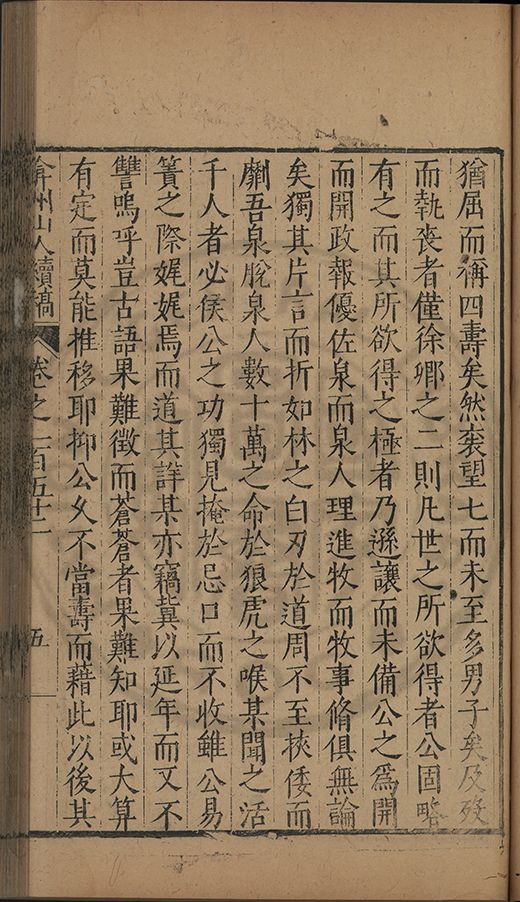 猶屈而稱四壽矣然袠望七而未至多男子矣及歿
而執喪者僅徐卿之二則凡世之所欲得者公固略
有之而其所欲得之極者乃遜讓而未備公之爲開
而開政報優佐泉而泉人理進牧而牧事脩俱無論
矣獨其片言而折如林之白刃於道周不至挾倭而
劘吾泉脫泉人數十萬之命於狼虎之喉某聞之活
千人者必侯公之功獨見掩於忌口而不收雖公易
簀之際娓娓焉而道其詳某亦竊冀以延年而又不
讐嗚乎豈古語果難徵而蒼蒼者果難知耶或大算
有定而莫能推移耶抑公父不當壽而藉此以後其
弇州山人續稿 卷之一百五十二 五